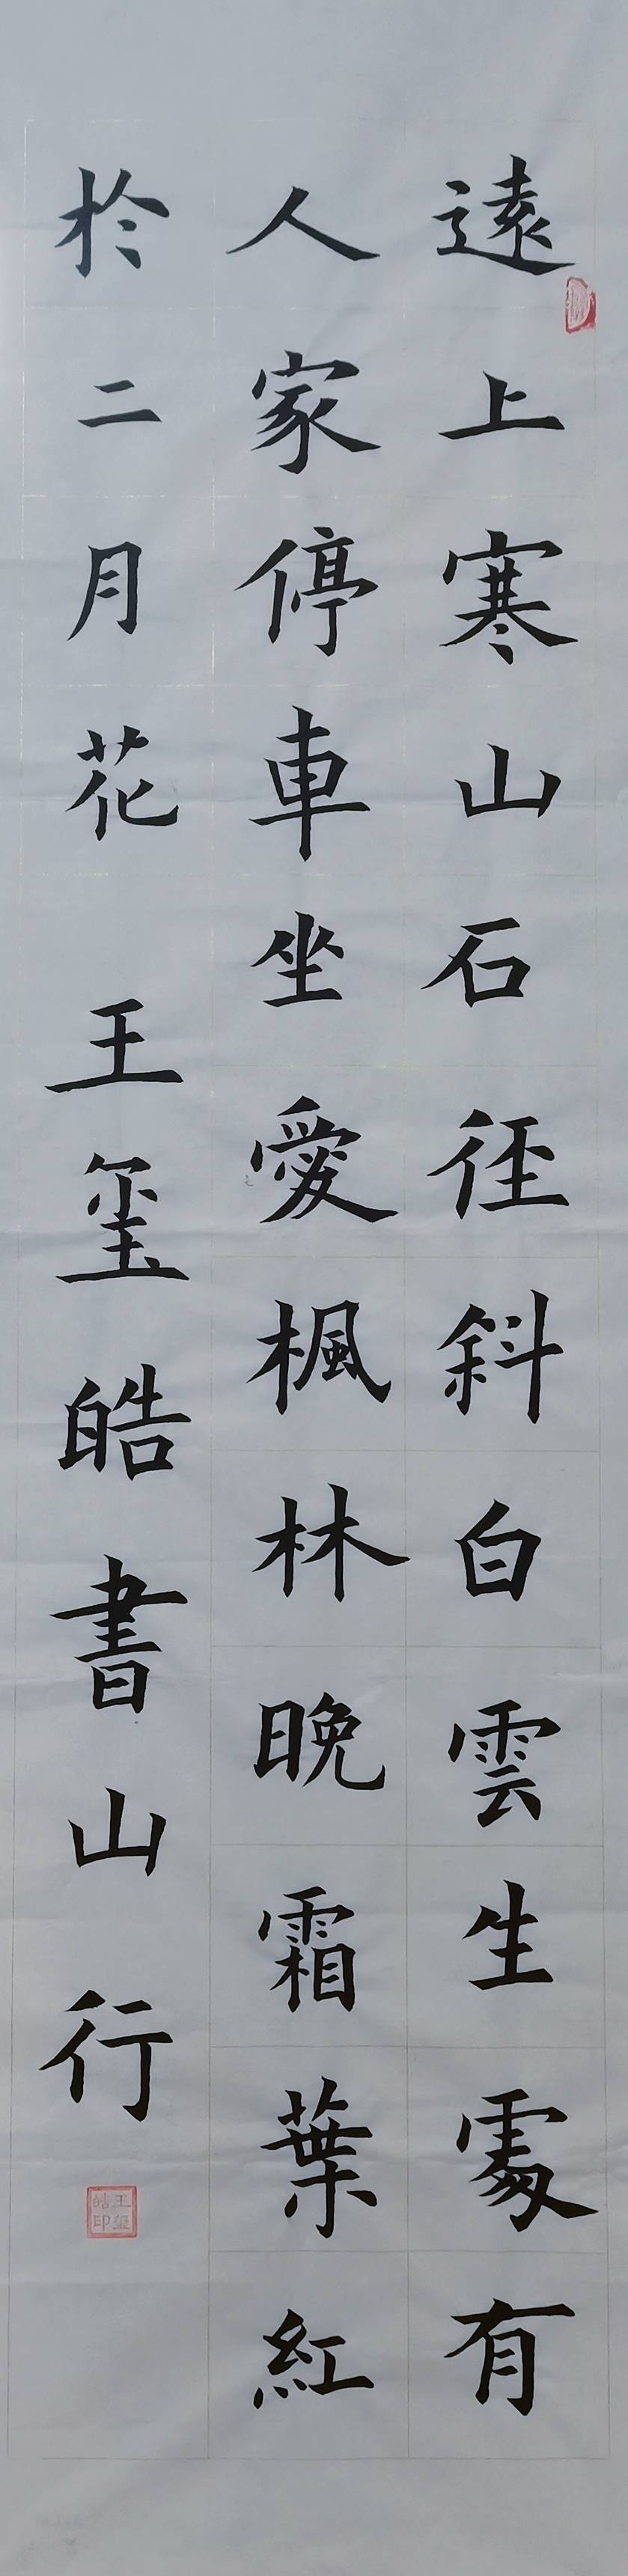 遠上寒山石徑斜白雲生處有
人家停車坐愛楓林晚霜葉紅
於二月花 王玺皓書山行
王玺皓印